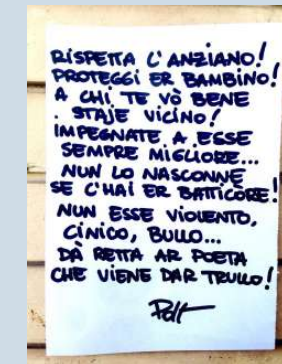 RISPETTA L'ANZIANO!
PROTEGGI ER BAMBINO!
A CHI TE VÒ BENE
STAJE VICINO!
IMPEGNATE A ESSE
SEMPRE MIGLIORE...
NUN LO NASCONNE
SE C'HAI ER BATTICORE!
NUN ESSE VIOLENTO,
CINICO, BULLO...
DÀ RETTA AR POETA
CHE VIENE DAR TRULLO!